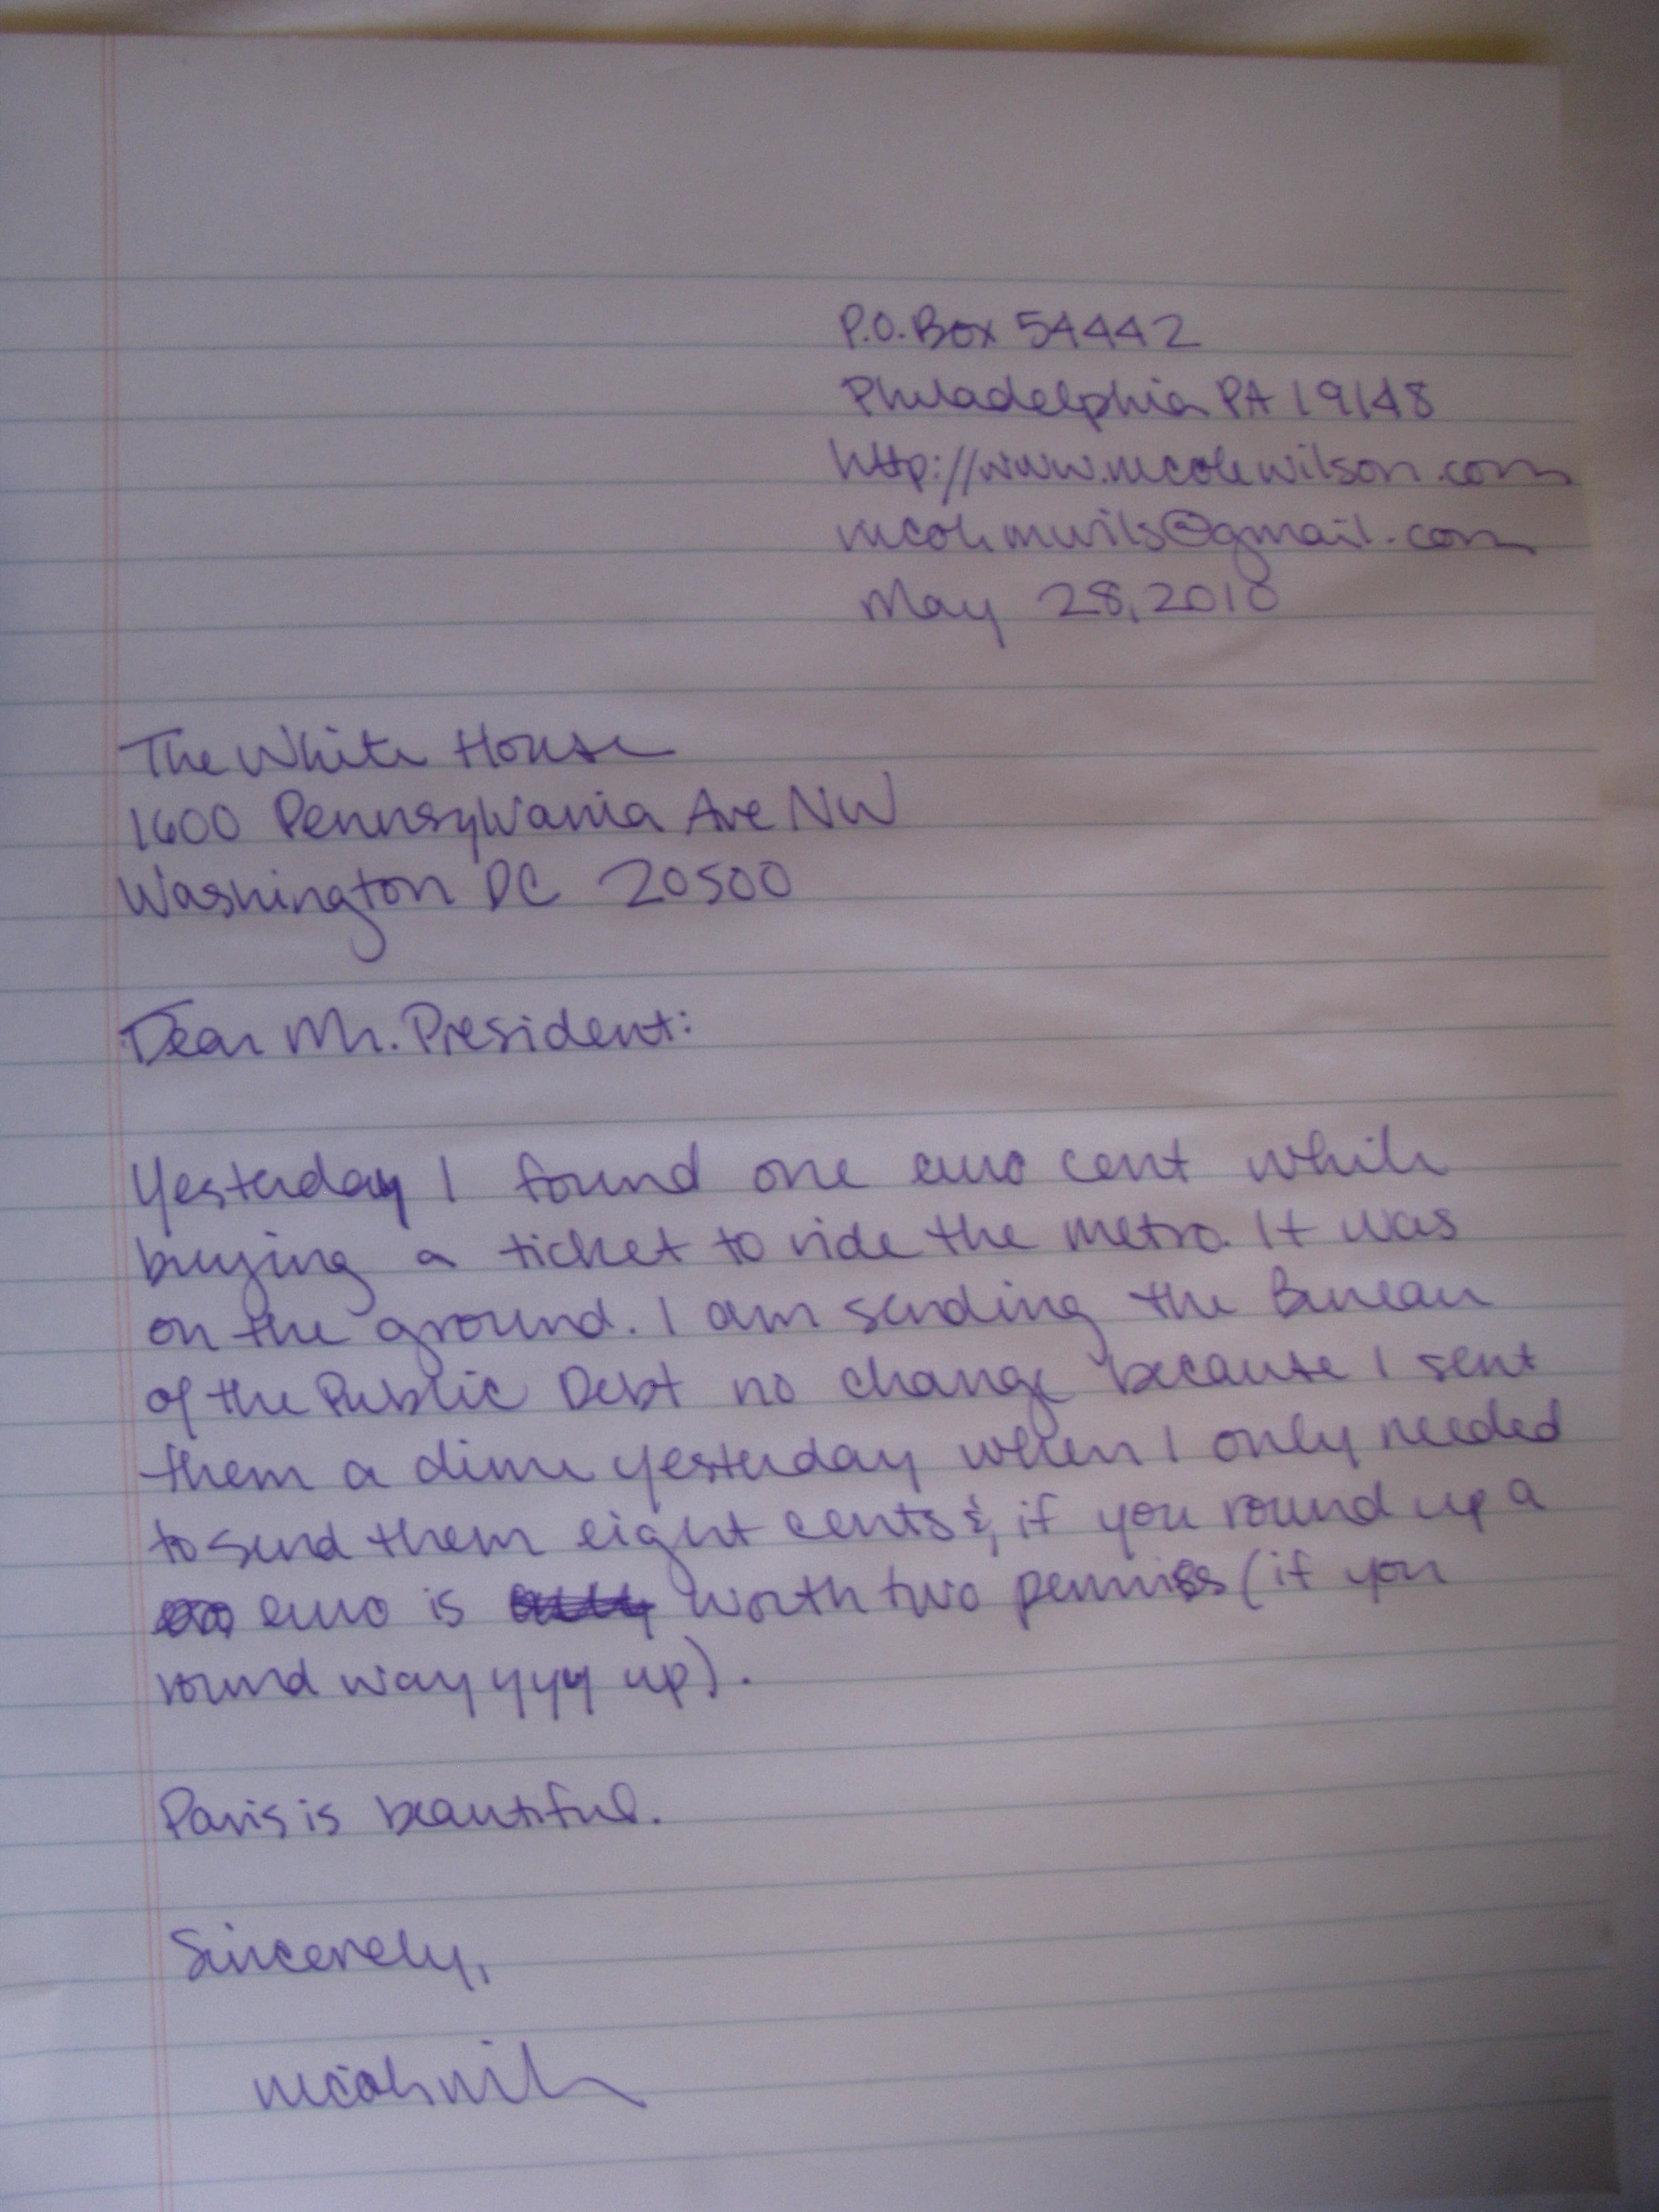 P.O. Box 54442
Philadelphia PA 19148
http://www.nicolewilson.com
nicolemwils@gmail.com
May 28, 2010
The White House
1600 Pennsylvania Ave NW
Washington DC 20500
Dear Mr. President:
Yesterday I found one euro cent while
buying a ticket to ride the metro. It was
on the ground. I am sending the Bureau
of the Public Debt no change because I sent
them a dime yesterday when I only needed
to send them eight cents &, if you round up a
euro is worth two pennies (if you
round way yyy up).
Paris is beautiful.
Sincerely,